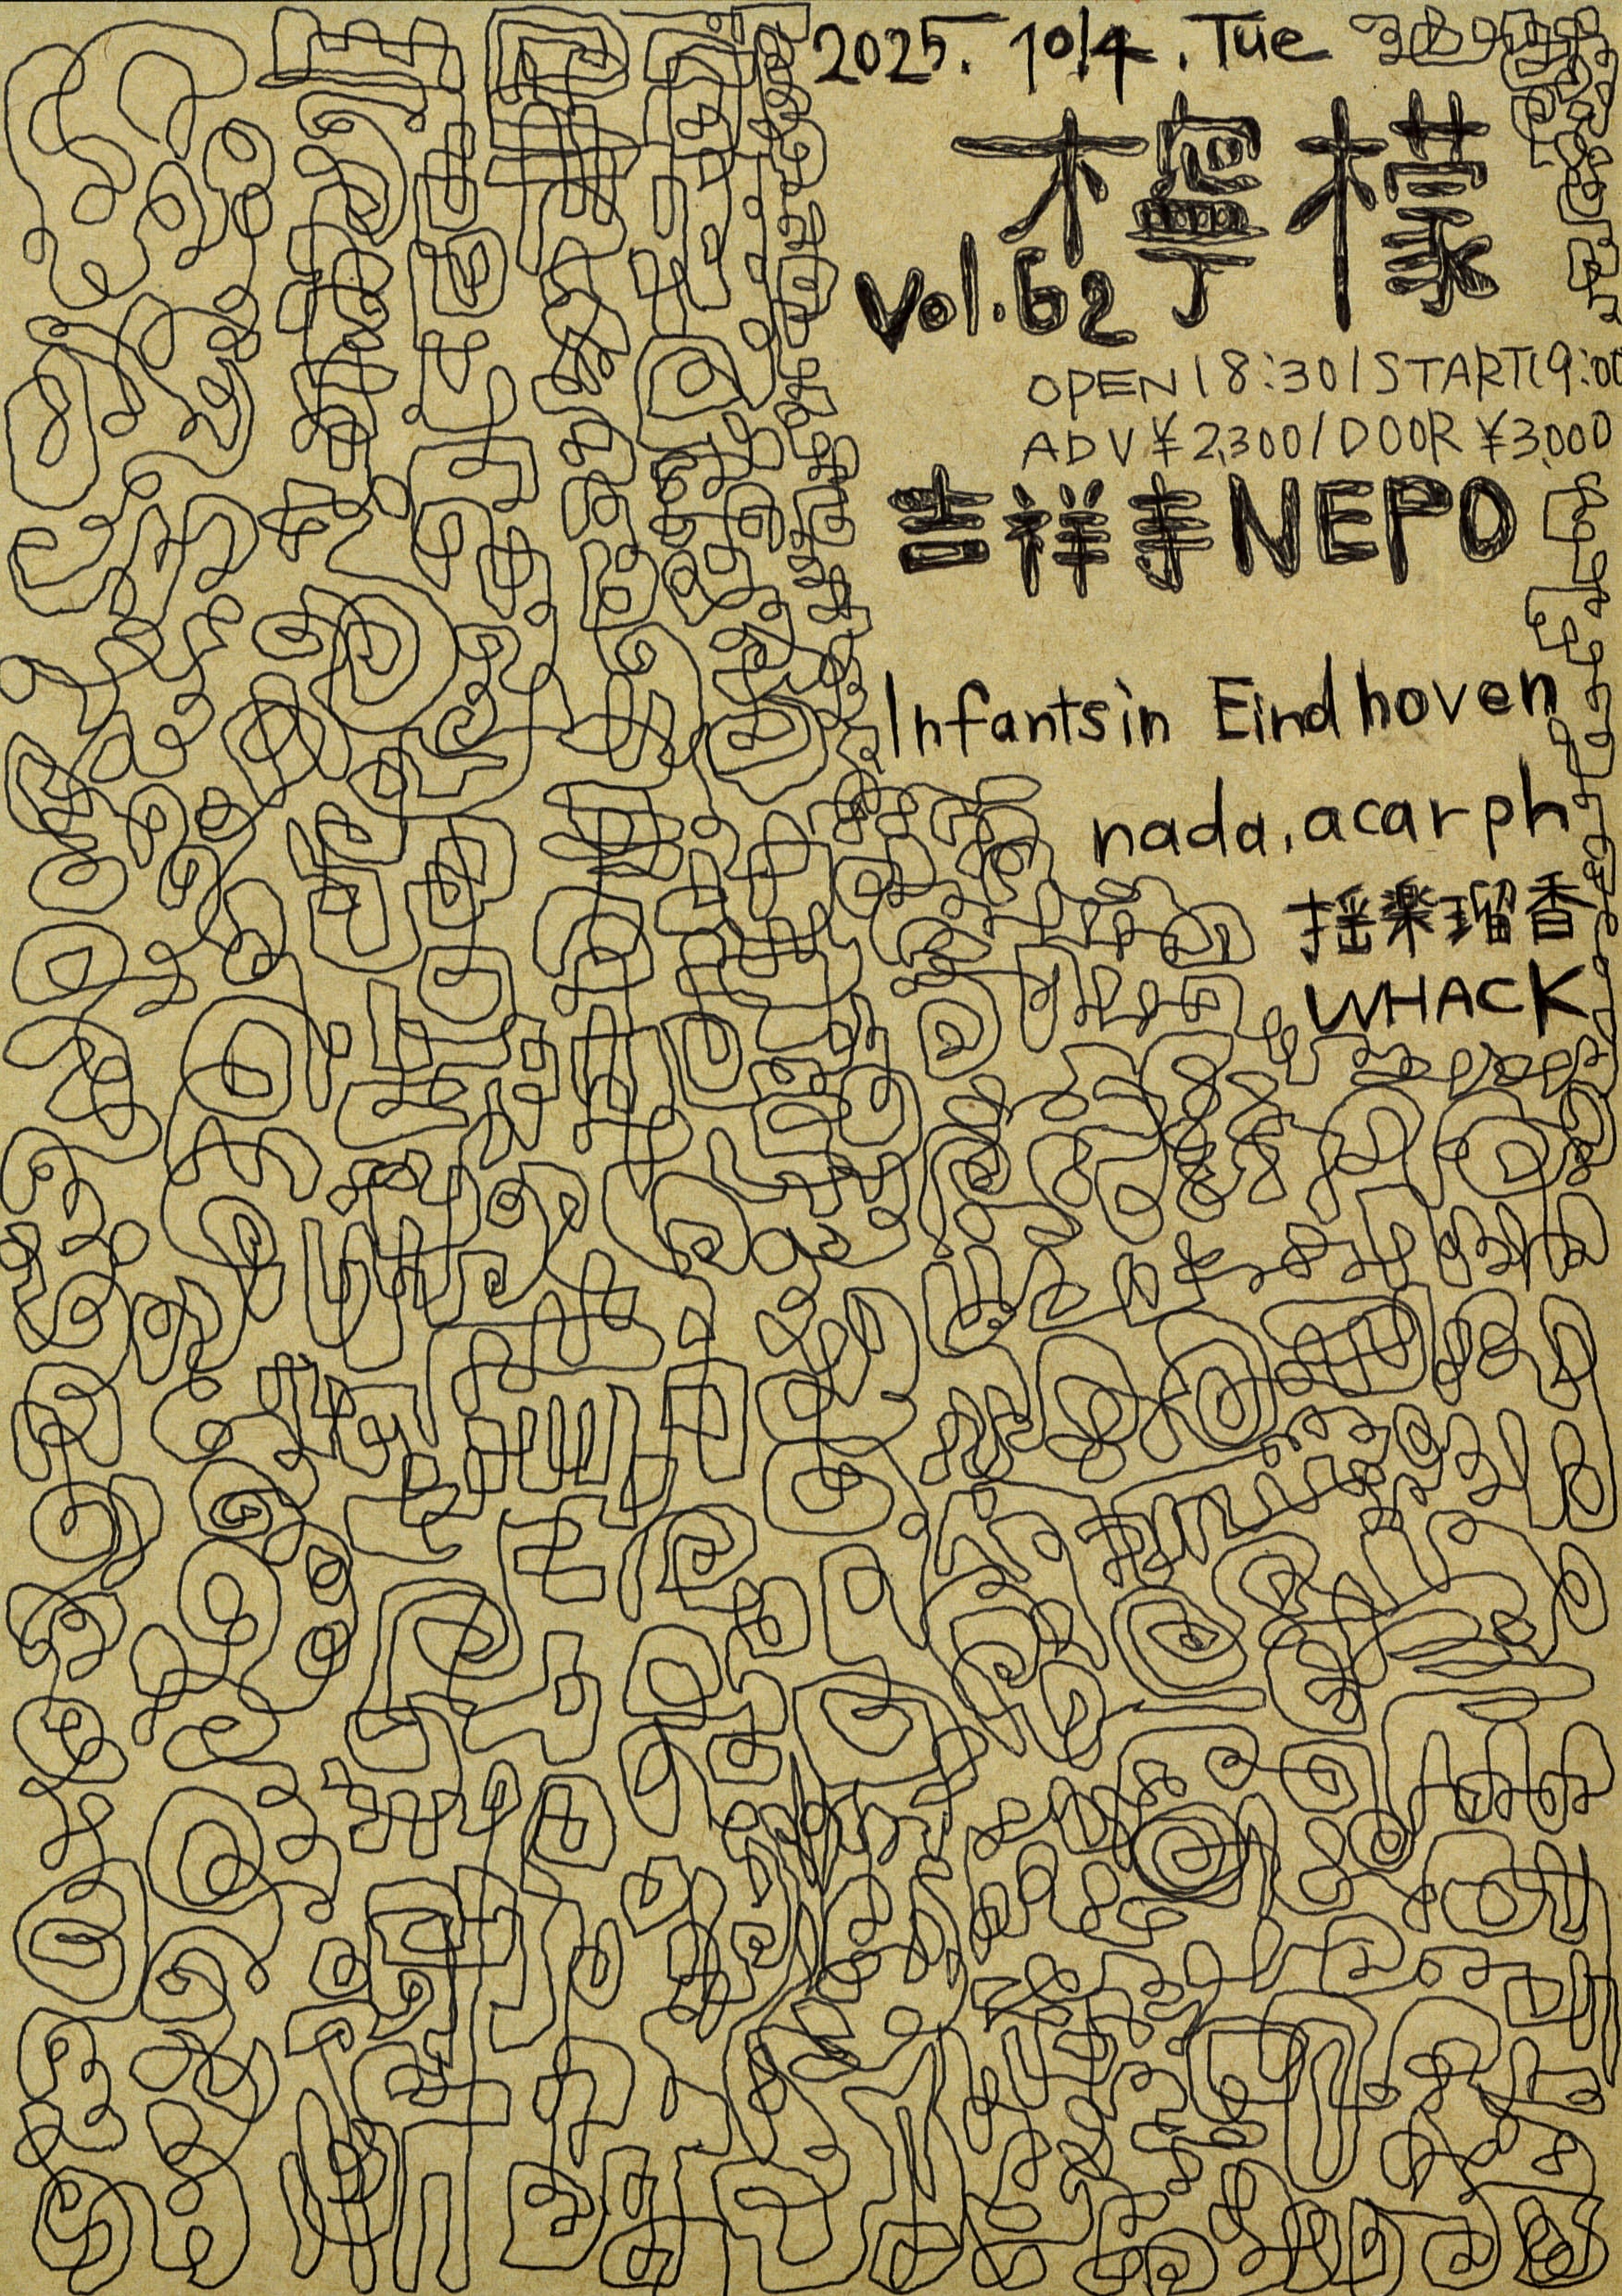 2025. 10/4. Tue
檸檬
Vol.62
OPEN 18:30/START19:00
ADV ¥2,300/DOOR ¥3,000
吉祥寺NEPO
Infantsin Eindhoven
nada.acarph
揺楽瑠香
WHACK